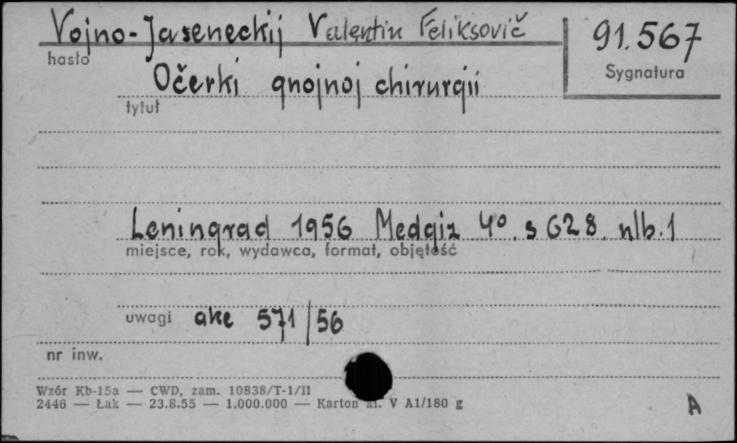 Vojno-Jaseneckij Valentin Feliksovič
91.567
hasło
Sygnatura
Očerki gnojnoj chirurgii
tytuł
Leningrad 1956 Medgiz 4° s 628 nlb. 1
miejsce, rok, wydawca, format, objętość
uwagi akc 571/56
nr inw.
Wzór Kb-15a — CWD, zam. 10838/T-1/II
2446 — Łak — 23.8.55 — 1.000.000 — Karton kl. V A1/180 g
A